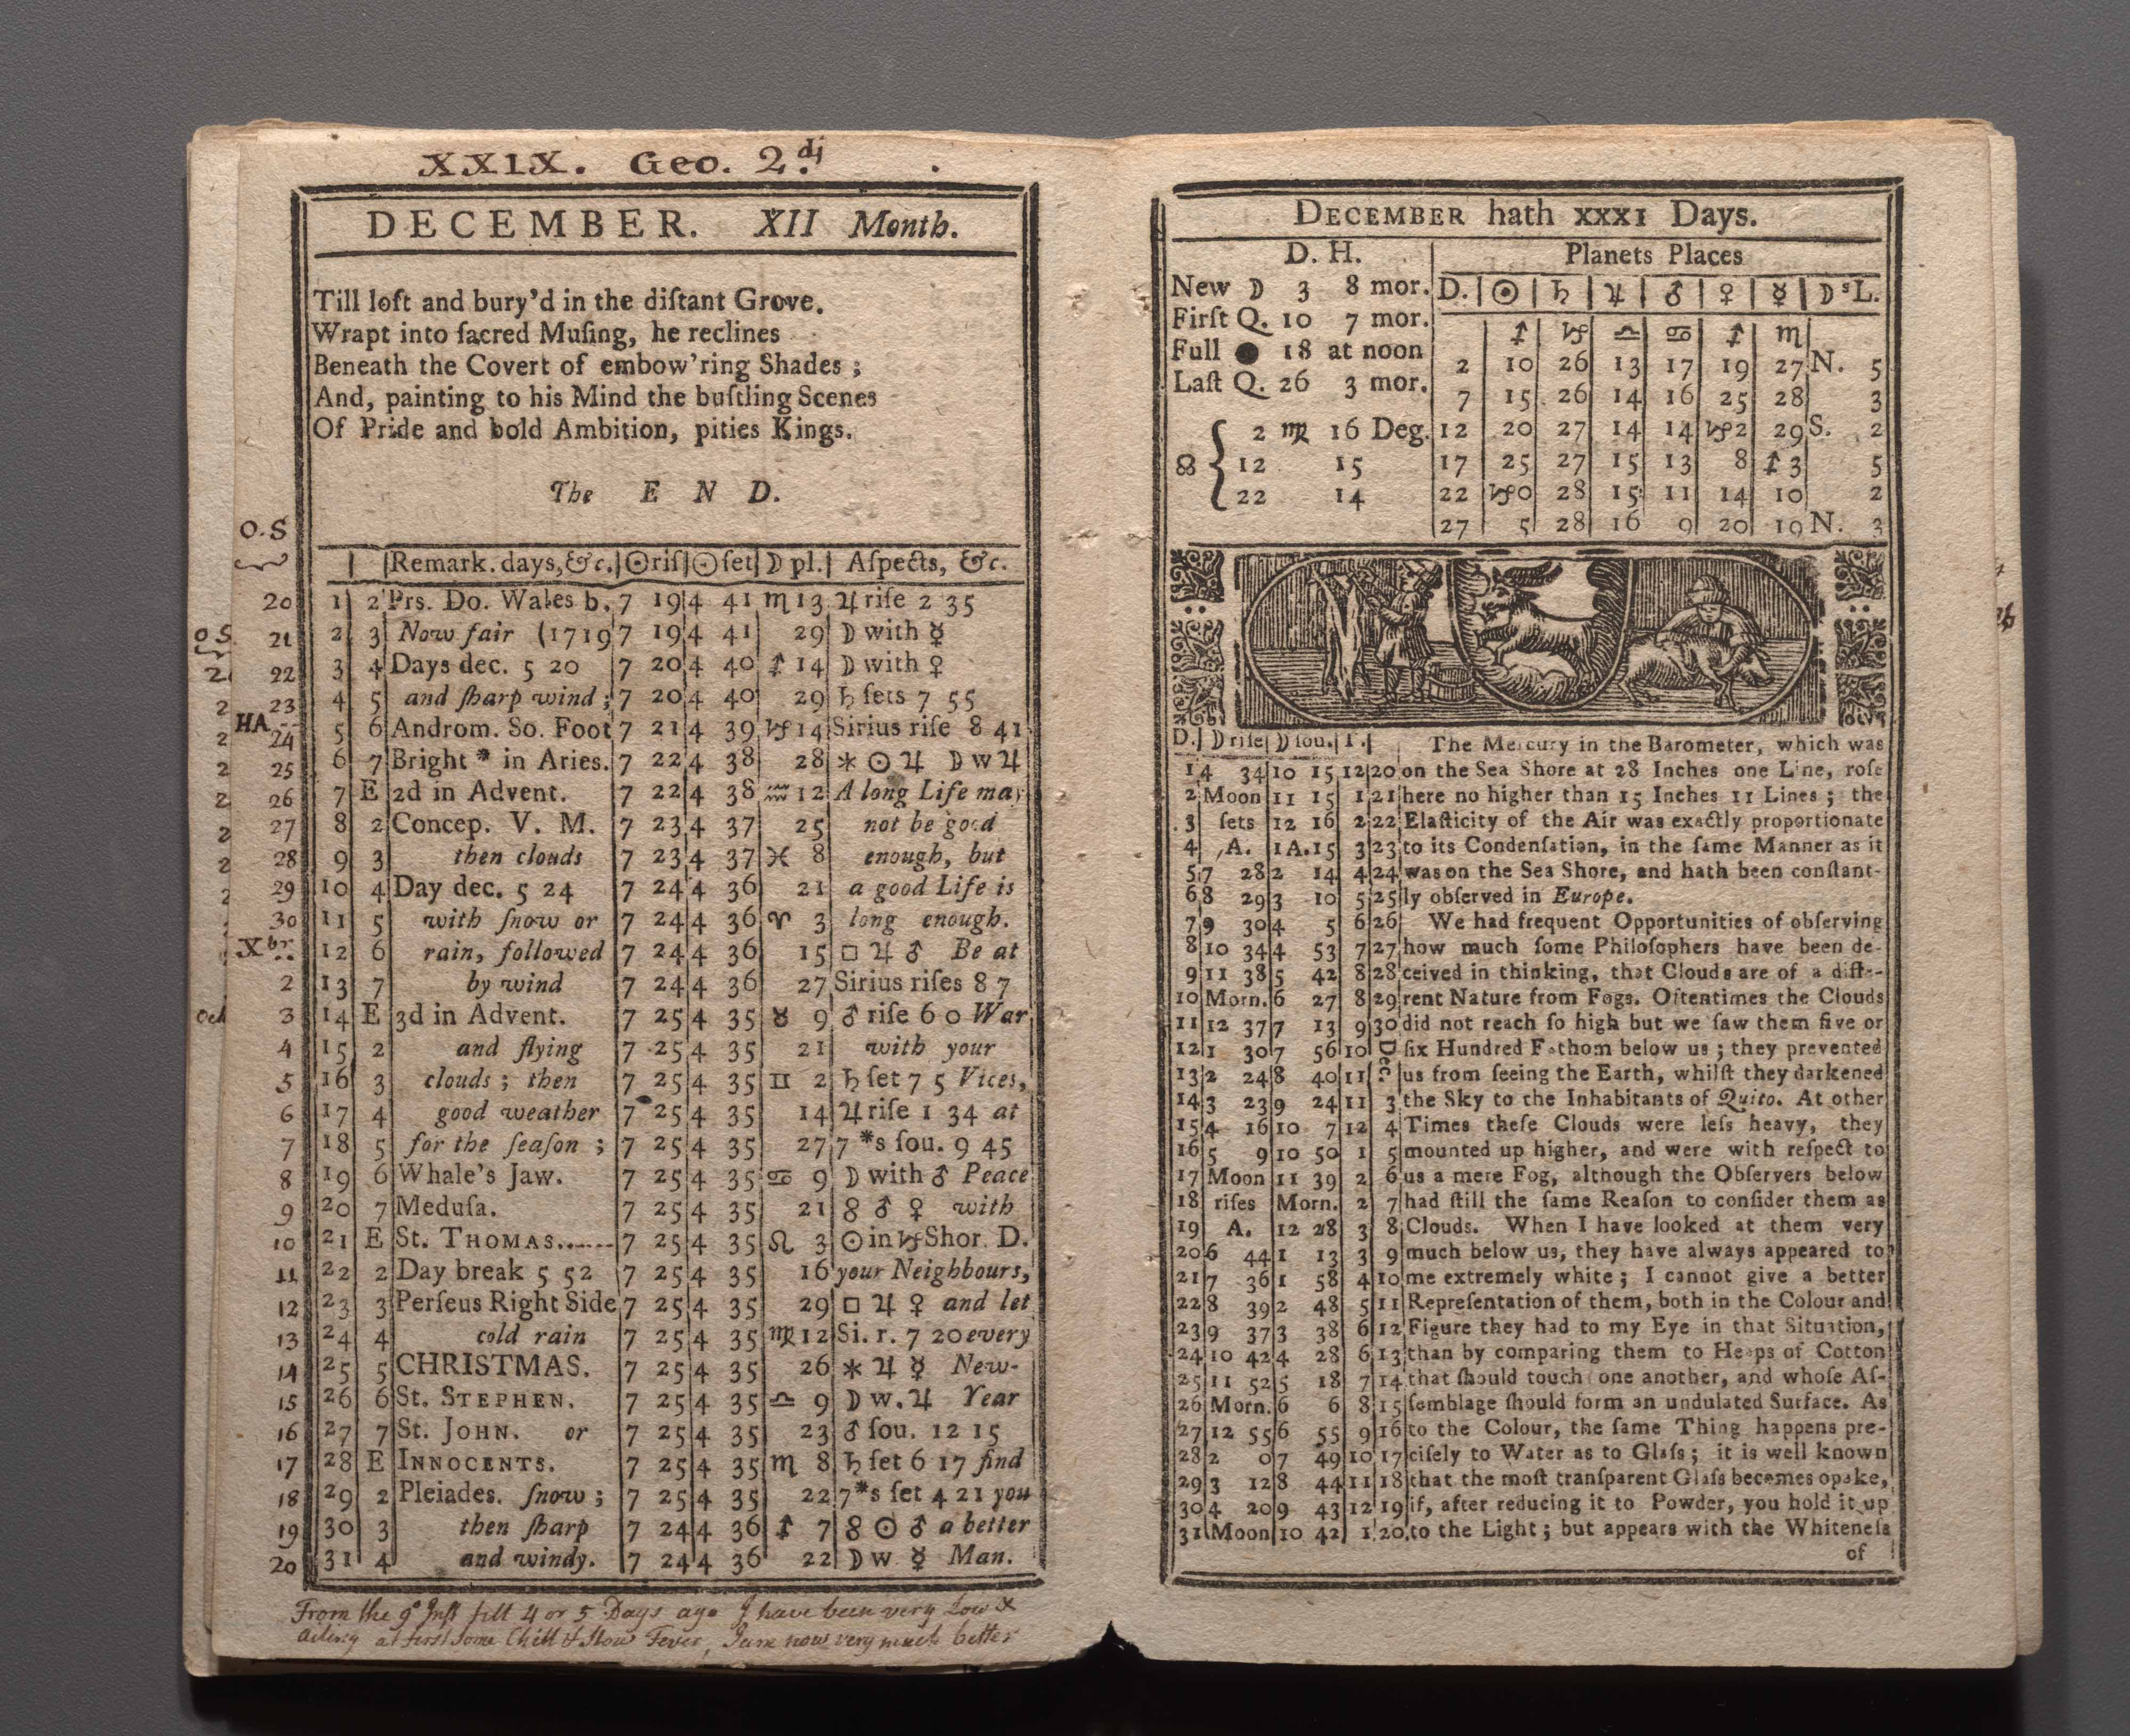 XXIX. Geo. 2.d
DECEMBER. XII Month.
Till loſt and bury'd in the diſtant Grove.
Wrapt into ſacred Muſing, he reclines
Beneath the Covert of embow'ring Shades ;
And, painting to his Mind the buſtling Scenes
Of Pride and bold Ambition, pities Kings.
The E N D.
O.S
| | |Remark. days, &c.|☉riſ|☉ſet|☽ pl.| Aſpects, &c.
20 1 2 Prs. Do. Wales b. 7 19 4 41 ♏ 13 ♃ riſe 2 35
21 2 3 Now fair (1719 7 19 4 41 29 ☽ with ☿
22 3 4 Days dec. 5 20 7 20 4 40 ♐ 14 ☽ with ♀
23 4 5 and ſharp wind ; 7 20 4 40 29 ♄ ſets 7 55
24 5 6 Androm. So. Foot 7 21 4 39 ♑ 14 Sirius riſe 8 41
25 6 7 Bright * in Aries. 7 22 4 38 28 ⚹ ☉ ♃ ☽ w ♃
26 7 E 2d in Advent. 7 22 4 38 ♒ 12 A long Life may
27 8 2 Concep. V. M. 7 23 4 37 25 not be good
28 9 3 then clouds 7 23 4 37 ♓ 8 enough, but
29 10 4 Day dec. 5 24 7 24 4 36 21 a good Life is
30 11 5 with ſnow or 7 24 4 36 ♈ 3 long enough.
Xbr. 12 6 rain, followed 7 24 4 36 15 □ ♃ ♂ Be at
2 13 7 by wind 7 24 4 36 27 Sirius riſes 8 7
3 14 E 3d in Advent. 7 25 4 35 ♉ 9 ♂ riſe 6 0 War
4 15 2 and flying 7 25 4 35 21 with your
5 16 3 clouds ; then 7 25 4 35 ♊ 2 ♄ ſet 7 5 Vices,
6 17 4 good weather 7 25 4 35 14 ♃ riſe 1 34 at
7 18 5 for the ſeaſon ; 7 25 4 35 27 7 *s ſou. 9 45
8 19 6 Whale's Jaw. 7 25 4 35 ♋ 9 ☽ with ♂ Peace
9 20 7 Meduſa. 7 25 4 35 21 ☍ ♂ ♀ with
10 21 E St. THOMAS...... 7 25 4 35 ♌ 3 ☉ in ♑ Shor. D.
11 22 2 Day break 5 52 7 25 4 35 16 your Neighbours,
12 23 3 Perſeus Right Side 7 25 4 35 29 □ ♃ ♀ and let
13 24 4 cold rain 7 25 4 35 ♍ 12 Si. r. 7 20 every
14 25 5 CHRISTMAS. 7 25 4 35 26 ⚹ ♃ ☿ New-
15 26 6 St. STEPHEN. 7 25 4 35 ♎ 9 ☽ w. ♃ Year
16 27 7 St. JOHN. or 7 25 4 35 23 ♂ ſou. 12 15
17 28 E INNOCENTS. 7 25 4 35 ♏ 8 ♄ ſet 6 17 find
18 29 2 Pleiades. ſnow ; 7 25 4 35 22 7*s ſet 4 21 you
19 30 3 then ſharp 7 24 4 36 ♐ 7 ☍ ☉ ♂ a better
20 31 4 and windy. 7 24 4 36 22 ☽ w ☿ Man.
From the 9° Inst till 4 or 5 Days ago I have been very Low &
ailing at first some Chill & slow Fever, I am now very much better
DECEMBER hath XXXI Days.
D. H.
New ☽ 3 8 mor.
Firſt Q. 10 7 mor.
Full ● 18 at noon
Laſt Q. 26 3 mor.
☊ { 2 ♍ 16 Deg.
12 15
22 14
Planets Places
D. | ☉ | ♄ | ♃ | ♂ | ♀ | ☿ | ☽sL.
♐ ♑ ♎ ♋ ♐ ♏
2 10 26 13 17 19 27 N. 5
7 15 26 14 16 25 28 3
12 20 27 14 14 ♑2 29 S. 2
17 25 27 15 13 8 ♐ 3 5
22 ♑0 28 15 11 14 10 2
27 5 28 16 9 20 19 N. 3
D.| ☽ riſe| ☽ ſou.| T.| The Mercury in the Barometer, which was
1 4 34 10 15 12 20 on the Sea Shore at 28 Inches one Line, roſe
2 Moon 11 15 1 21 here no higher than 15 Inches 11 Lines ; the
3 ſets 12 16 2 22 Elaſticity of the Air was exactly proportionate
4 A. 1A.15 3 23 to its Condenſation, in the ſame Manner as it
5 7 28 2 14 4 24 was on the Sea Shore, and hath been conſtant-
6 8 29 3 10 5 25 ly obſerved in Europe.
7 9 30 4 5 6 26 We had frequent Opportunities of obſerving
8 10 34 4 53 7 27 how much ſome Philoſophers have been de-
9 11 38 5 42 8 28 ceived in thinking, that Clouds are of a diffe-
10 Morn. 6 27 8 29 rent Nature from Fogs. Oftentimes the Clouds
11 12 37 7 13 9 30 did not reach ſo high but we ſaw them five or
12 1 30 7 56 10 Dec. ſix Hundred Fathom below us ; they prevented
13 2 24 8 40 11 us from ſeeing the Earth, whilſt they darkened
14 3 23 9 24 11 3 the Sky to the Inhabitants of Quito. At other
15 4 16 10 7 12 4 Times theſe Clouds were leſs heavy, they
16 5 9 10 50 1 5 mounted up higher, and were with reſpect to
17 Moon 11 39 2 6 us a mere Fog, although the Obſervers below
18 riſes Morn. 2 7 had ſtill the ſame Reaſon to conſider them as
19 A. 12 28 3 8 Clouds. When I have looked at them very
20 6 44 1 13 3 9 much below us, they have always appeared to
21 7 36 1 58 4 10 me extremely white ; I cannot give a better
22 8 39 2 48 5 11 Repreſentation of them, both in the Colour and
23 9 37 3 38 6 12 Figure they had to my Eye in that Situation,
24 10 42 4 28 6 13 than by comparing them to Heaps of Cotton
25 11 52 5 18 7 14 that ſhould touch one another, and whoſe Aſ-
26 Morn. 6 6 8 15 ſemblage ſhould form an undulated Surface. As
27 12 55 6 55 9 16 to the Colour, the ſame Thing happens pre-
28 2 0 7 49 10 17 ciſely to Water as to Glaſs ; it is well known
29 3 12 8 44 11 18 that the moſt tranſparent Glaſs becomes opake,
30 4 20 9 43 12 19 if, after reducing it to Powder, you hold it up
31 Moon 10 42 1 20 to the Light ; but appears with the Whiteneſs
of